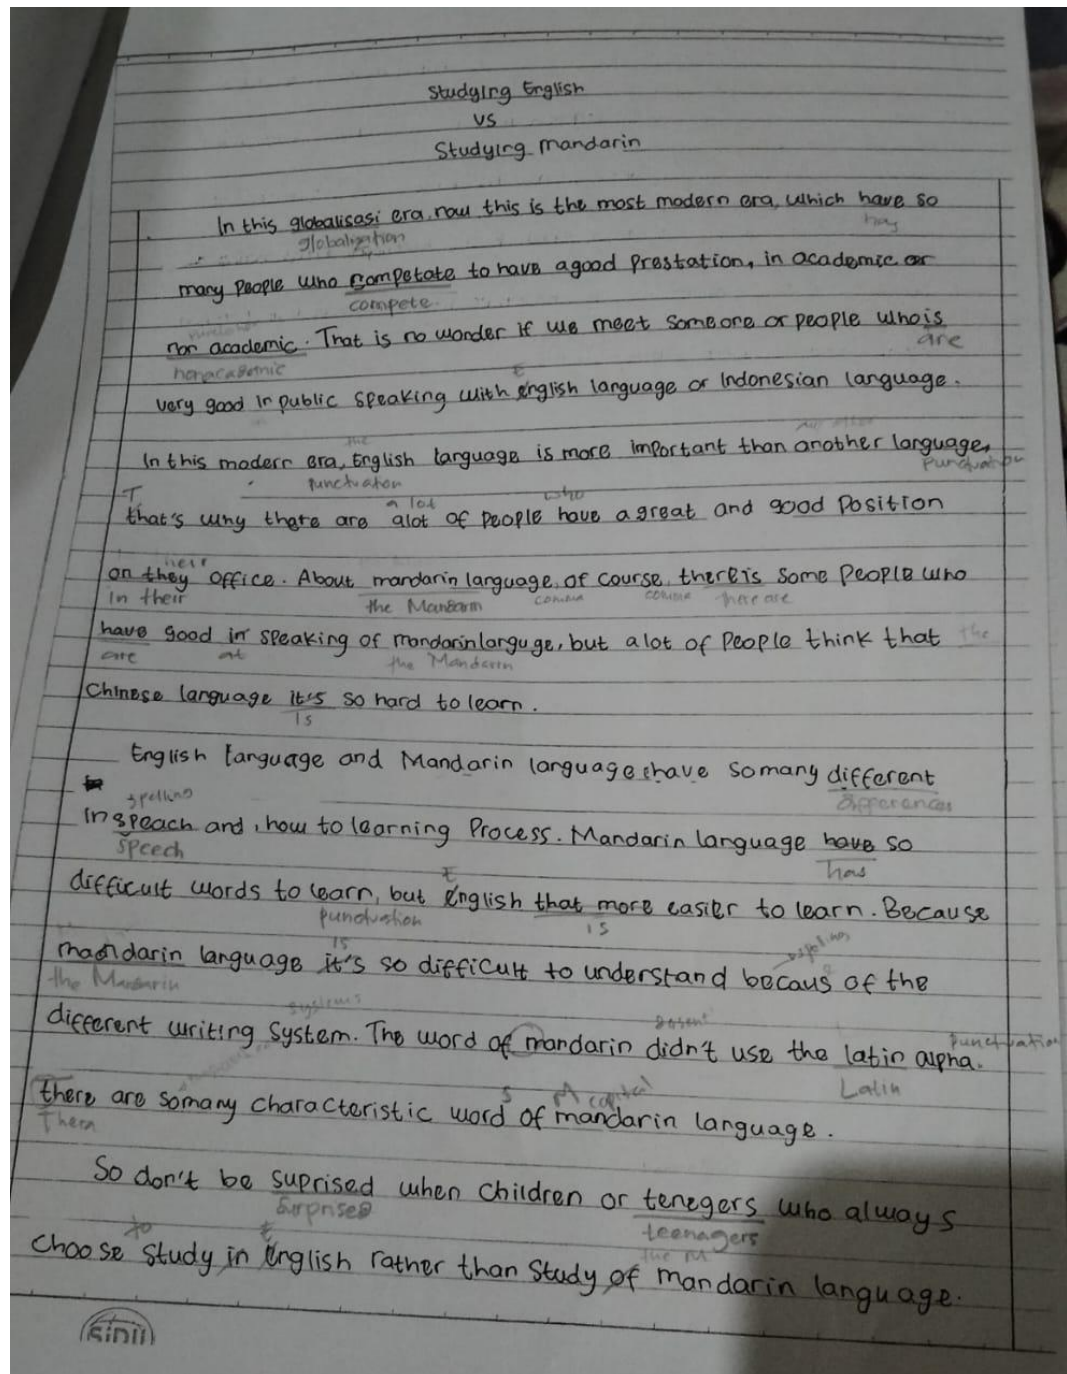 Studying English
VS
Studying mandarin
In this globalisasi era, now this is the most modern era, which have so
globalization has
many people who competate to have a good prestation, in academic or
compete
non academic. That is no wonder if we meet someone or people who is
nonacademic are
E
very good in public speaking with english language or Indonesian language.
the
In this modern era, English language is more important than another language,
punctuation punctuation
T a lot who
that's why there are alot of people have a great and good position
their
on they office. About mandarin language, of course, there is some people who
in their the Mandarin comma comma there are
have good in speaking of mandarin languge, but a lot of people think that the
are at the Mandarin
Chinese language it's so hard to learn.
is
English language and Mandarin language have so many different
differences
spelling
In speach and, how to learning process. Mandarin language have so
speech has
E
difficult words to learn, but english that more easier to learn. Because
punctuation is
is spelling
mandarin language it's so difficult to understand becaus of the
the Mandarin
systems
different writing system. The word of mandarin didn't use the latin alpha.
doesn't punctuation
Latin
s capital
there are so many characteristic word of mandarin language.
There
So don't be suprised when children or tenegers who always
surprised teenagers
to E the M
choose study in english rather than study of mandarin language.
SIDU